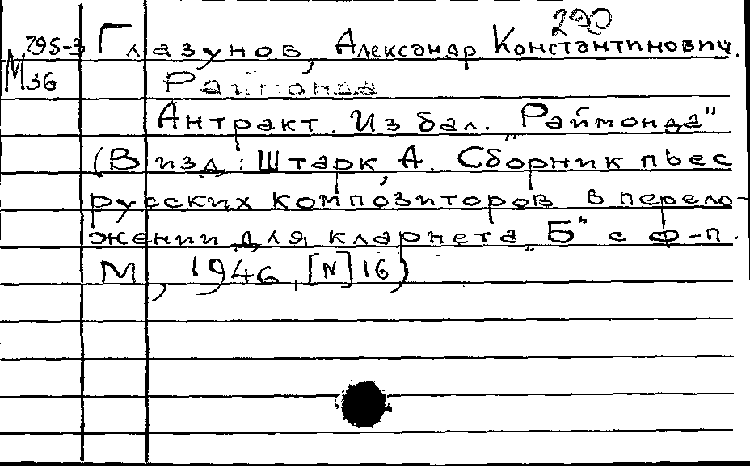 290
М 795-3 Глазунов, Александр Константинович.
36 Раймонда
Антракт. Из бал. "Раймонда"
(В изд.: Штарк, А. Сборник пьес
русских композиторов в перело-
жении для кларнета "Б" с ф-п.
М, 1946, [N] 16)